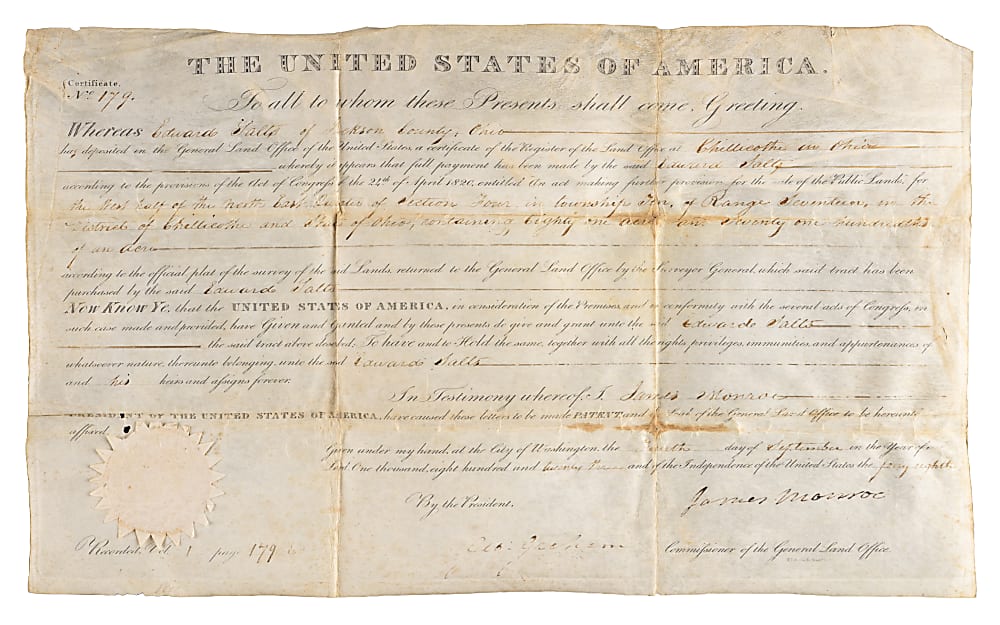 THE UNITED STATES OF AMERICA.
Certificate,
No 179.
To all to whom these Presents shall come, Greeting.
Whereas Edward Salts of Jackson County, Ohio
has deposited in the General Land Office of the United States, a certificate of the Register of the Land Office at Chillicothe in Ohio
whereby it appears that full payment has been made by the said Edward Salts
according to the provisions of the Act of Congress of the 24th of April 1820, entitled An act making further provision for the sale of the Public Lands, for
the West half of the North East Quarter of Section Four in township Ten, of Range Seventeen, in the
District of Chillicothe and State of Ohio, containing Eighty one acres and Seventy one hundredths
of an acre
according to the official plat of the survey of the said Lands, returned to the General Land Office by the Surveyor General, which said tract has been
purchased by the said Edward Salts
Now Know Ye, that the UNITED STATES OF AMERICA, in consideration of the Premises, and in conformity with the several acts of Congress, in
such case made and provided, have Given and Granted and by these presents do give and grant unto the said Edward Salts
the said tract above described; To have and to Hold the same, together with all the rights, privileges, immunities, and appurtenances of
whatsoever nature, thereunto belonging, unto the said Edward Salts
and his heirs and assigns forever.
In Testimony whereof, I James Monroe
PRESIDENT OF THE UNITED STATES OF AMERICA, have caused these letters to be made PATENT, and Seal of the General Land Office to be hereunto
affixed.
Given under my hand, at the City of Washington, the day of September in the Year of
Lord One thousand, eight hundred and twenty and of the Independence of the United States the forty eighth
James Monroe
By the President,
Recorded, Vol 1 page 179
Geo: Graham Commissioner of the General Land Office.